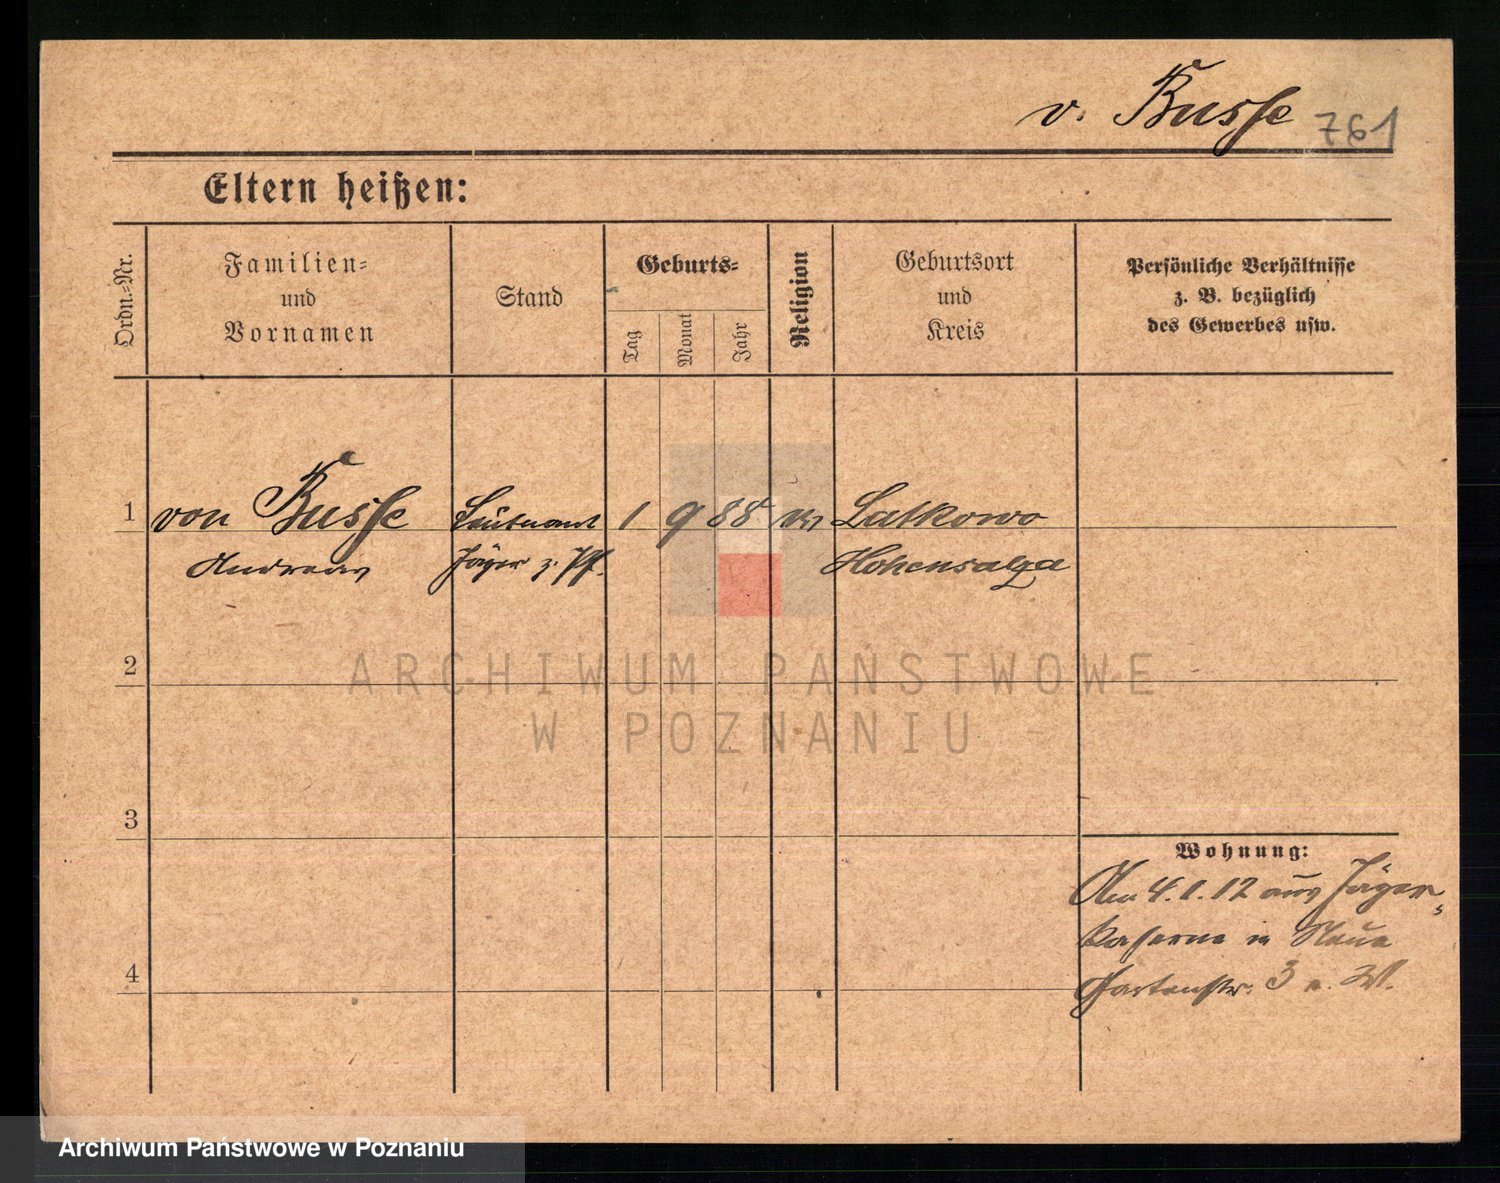 v. Busse 761
Eltern heißen:
Ordn.-Nr.
Familien-
und
Vornamen
Stand
Geburts-
Tag
Monat
Jahr
Religion
Geburtsort
und
Kreis
Persönliche Verhältnisse
z. B. bezüglich
des Gewerbes usw.
1 von Busse Leutnant 1 9 88 ev Latkowo
Andreas Jäger z. Pf. Hohensalza
2
3
4
Wohnung:
Am 4.1.12 aus Jäger-
kaserne in Neue
Gartenstr. 3 a. W.
ARCHIWUM PAŃSTWOWE
W POZNANIU
Archiwum Państwowe w Poznaniu